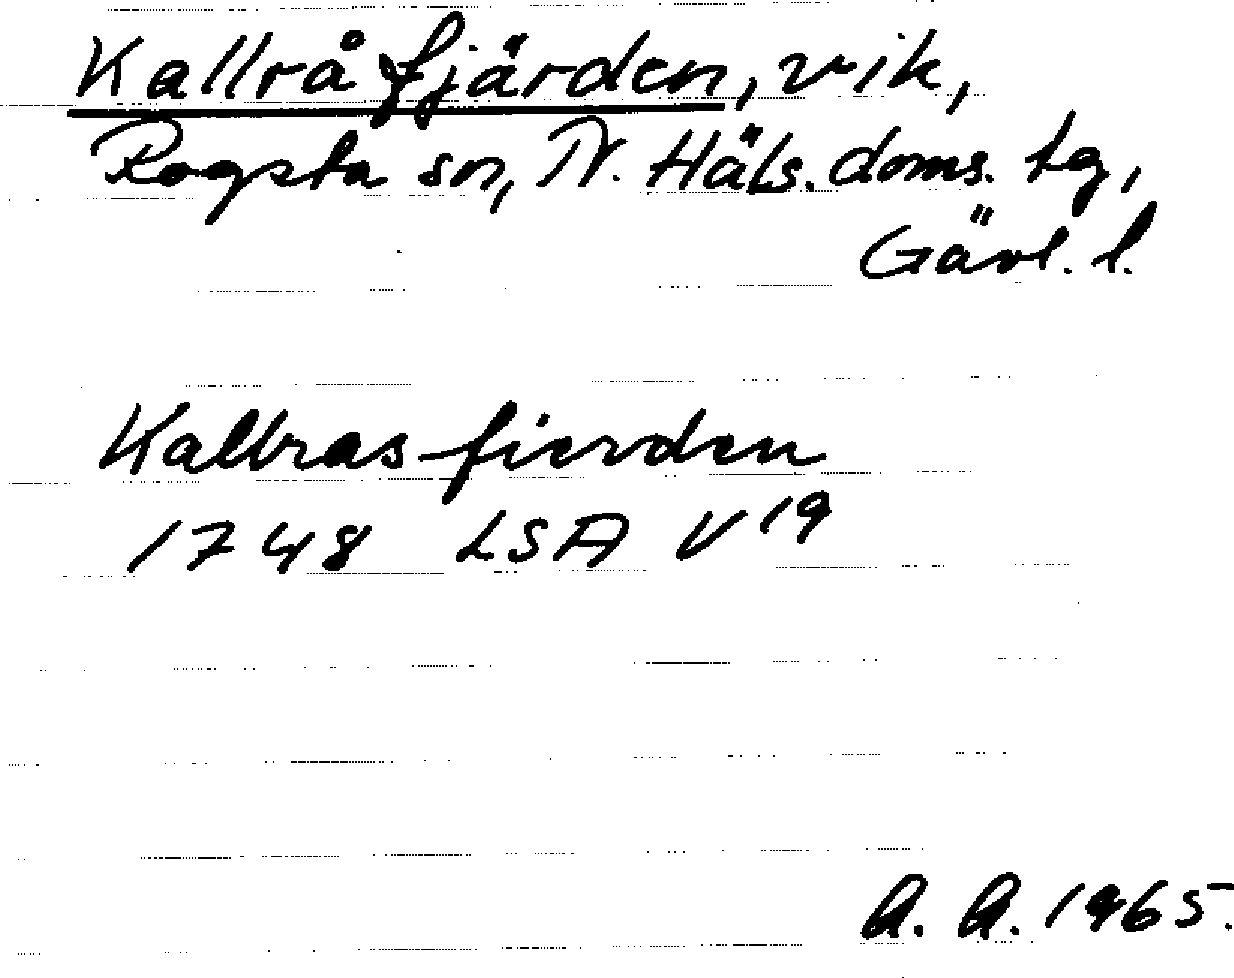 Kallråfjärden, vik,
Rogsta sn, N. Häls. doms. tg,
Gävl. l.
Kallras fierden
1748 LSA V19
A. A. 1965.